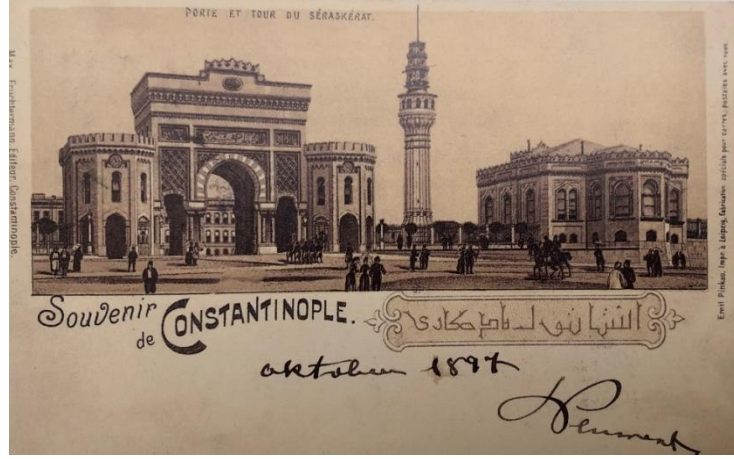 PORTE ET TOUR DU SÉRASKÉRAT.
Max Fruchtermann Editeur Constantinople.
Emil Pinkau, Impr. à Leipzig, fabrication spéciale pour cartes postales avec vues.
Souvenir
de CONSTANTINOPLE.
oktober 1897